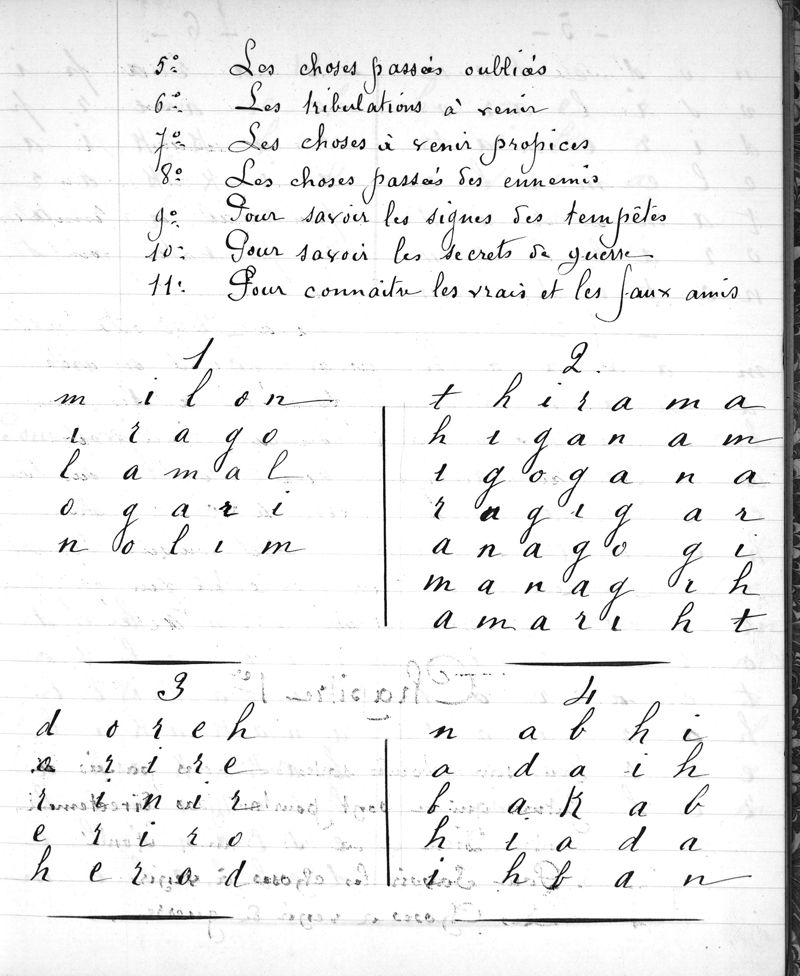 5º Les choses passées oubliées
6º Les tribulations à venir
7º Les choses à venir propices
8º Les choses passées des ennemis
9º Pour savoir les signes des tempêtes
10º Pour savoir les secrets de guerre
11º Pour connaitre les vrais et les faux amis
1
m i l o n
i r a g o
l a m a l
o g a r i
n o l i m
2.
t h i r a m a
h i g a n a m
i g o g a n a
r a g i g a r
a n a g o g i
m a n a g i h
a m a r i h t
3
d o r e h
o r i r e
r i n i r
e r i r o
h e r o d
4
n a b h i
a d a i h
b a k a b
h i a d a
i h b a n